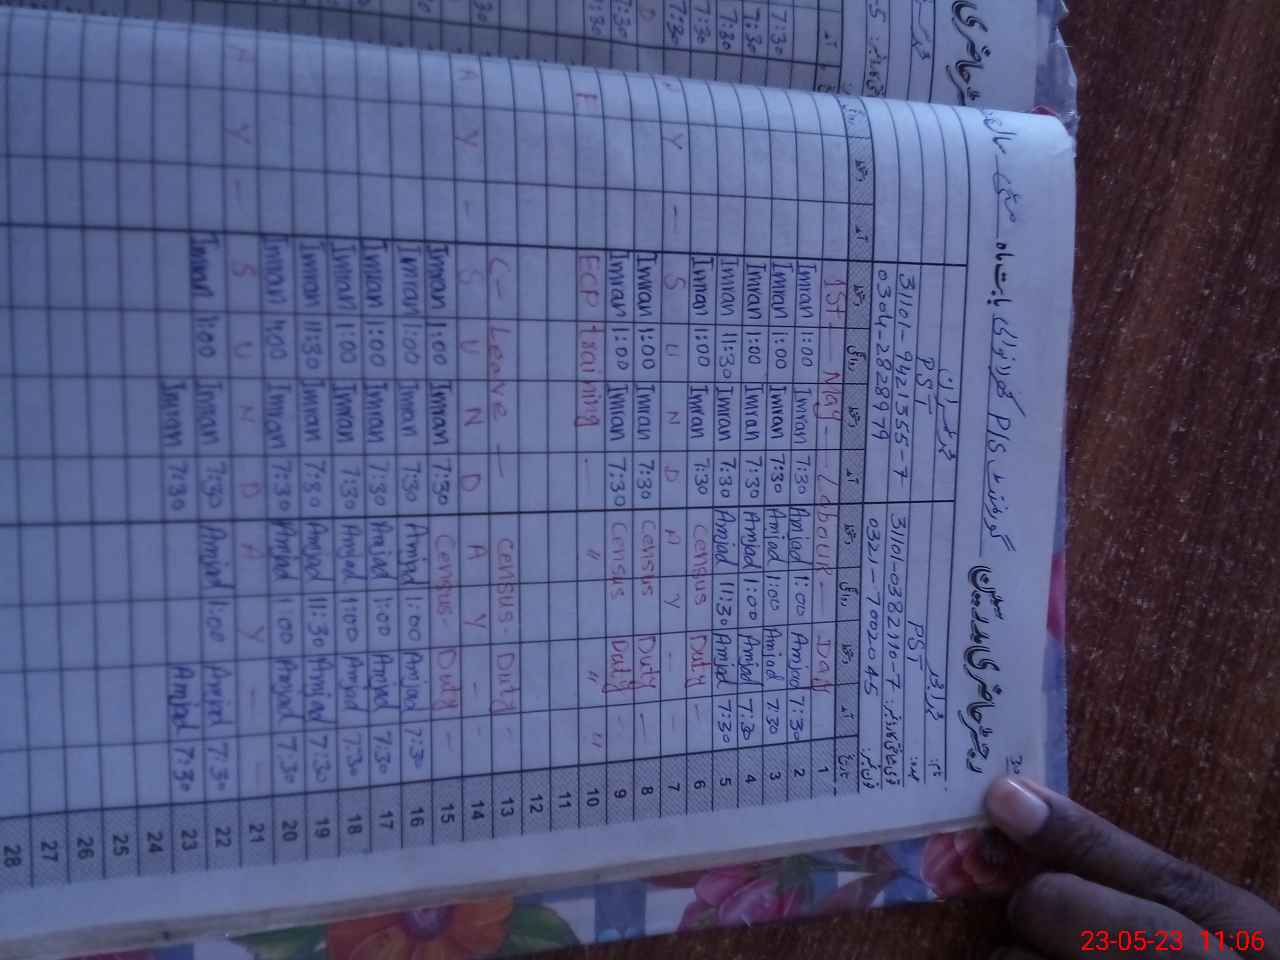 رجسٹر حاضری مدرسین
گورنمنٹ P/S بابت ماہ مئی
نام:
PST PST عہدہ:
31101-9421355-7 31101-0382110-7 قومی شناختی کارڈ نمبر:
0304-2828979 0321-7002045 فون نمبر:
دستخط آمد دستخط روانگی دستخط آمد دستخط روانگی دستخط آمد تاریخ
1st - May - Labour - Day 1
Imran 1:00 Imran 7:30 Amjad 1:00 Amjad 7:30 2
Imran 1:00 Imran 7:30 Amjad 1:00 Amjad 7:30 3
Imran 1:00 Imran 7:30 Amjad 1:00 Amjad 7:30 4
Imran 11:30 Imran 7:30 Amjad 11:30 Amjad 7:30 5
Imran 1:00 Imran 7:30 Census Duty - 6
A Y - S U N D A Y - - 7
Imran 1:00 Imran 7:30 Census Duty - 8
Imran 1:00 Imran 7:30 Census Duty - 9
ECP training - " " " 10
11
12
C - Leave - Census - Duty - 13
A Y - S U N D A Y - - 14
Imran 1:00 Imran 7:30 Census - Duty - 15
Imran 1:00 Imran 7:30 Amjad 1:00 Amjad 7:30 16
Imran 1:00 Imran 7:30 Amjad 1:00 Amjad 7:30 17
Imran 1:00 Imran 7:30 Amjad 1:00 Amjad 7:30 18
Imran 11:30 Imran 7:30 Amjad 11:30 Amjad 7:30 19
Imran 1:00 Imran 7:30 Amjad 1:00 Amjad 7:30 20
A Y - S U N D A Y - - 21
Imran 1:00 Imran 7:30 Amjad 1:00 Amjad 7:30 22
Imran 7:30 Amjad 7:30 23
24
25
26
27
28
23-05-23 11:06